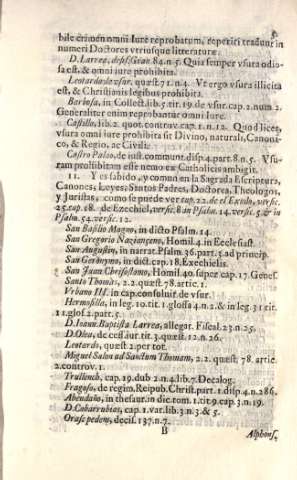 bile crimen omni iure reprobatum, reperiri traduntin
numeri Doctores vtriusque litteraturæ.
D. Larrea, decis. Gran. 84. n. 5. Quia semper vsura odio-
sa est, & omni iure prohibita.
Leotardo de vsur. quæst. 71. n. 4. Vt ergo vsura illicita
est, & Christianis legibus prohibita.
Barbosa, in Collect. lib. 5. tit. 19. de vsur. cap. 2. num. 2.
Generaliter enim reprobantur omni iure.
Castillo, lib. 2. quot. controv. cap. 1. n. 12. Quod licet,
vsura omni iure prohibita sit Divino, naturali, Canoni-
co, & Regio, ac Civili.
Castro Palao, de iust. commut. disp. 4. part. 8. n. 5. Vsu-
ram prohibitam esse nemo ex Catholicis ambigit.
11. Y es sabido, y comun en la Sagrada Escriptura,
Canones, Leyes, Santos Padres, Doctores, Theologos,
y Juristas, como se puede ver cap. 22. de el Exodo, versic.
25. cap. 18. de Ezechiel, versic. 8. in Psalm. 14. versic. 5. & in
Psalm. 54. versic. 12.
San Basilio Magno, in dicto Psalm. 14.
San Gregorio Nazianzeno, Homil. 4. in Ecclesiast.
San Augustin, in narrat. Psalm. 36. part. 5. ad princip.
San Geronymo, in dict. cap. 18. Exechielis.
San Juan Chrisostomo, Homil. 40. super cap. 17. Genes.
Santo Thomas, 2. 2. quæst. 78. artic. 1.
Vrbano III. in cap. consuluit de vsur.
Hermosilla, in leg. 10. tit. 1. glossa 4. n. 2. & in leg. 31. tit.
11. glos. 2. part. 5.
D. Ioann. Baptista Larrea, allegat. Fiscal. 23. n. 25.
D. Olea, de ces. iur. tit. 3. quæst. 12. n. 26.
Leotardo, quæst. 2. per tot.
Miguel Salon ad Sanctum Thomam, 2. 2. quæst. 78. artic.
2. controv. 1.
Trullench, cap. 19. dub. 2. n. 4. lib. 7. Decalog.
Fragoso, de regim. Reipub. Christ. part. 1. disp. 4. n. 286.
Abendaño, in thesaur. in dic. tom. 1. tit. 9. cap. 3. n. 19.
D. Cobarrubias, cap. 1. var. lib. 3. n. 3. & 5.
Oraspedem, decis. 137. n. 7.
B
Alphons.